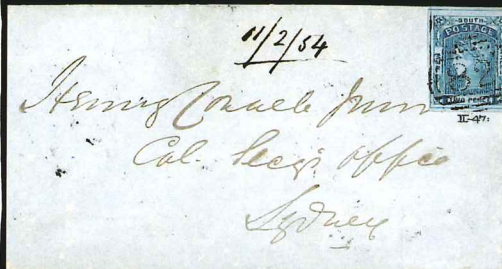 11/2/54
SOUTH
POSTAGE
TWO PENCE
II-47.
Henry Connell Junr
Col. Secys Office
Sydney